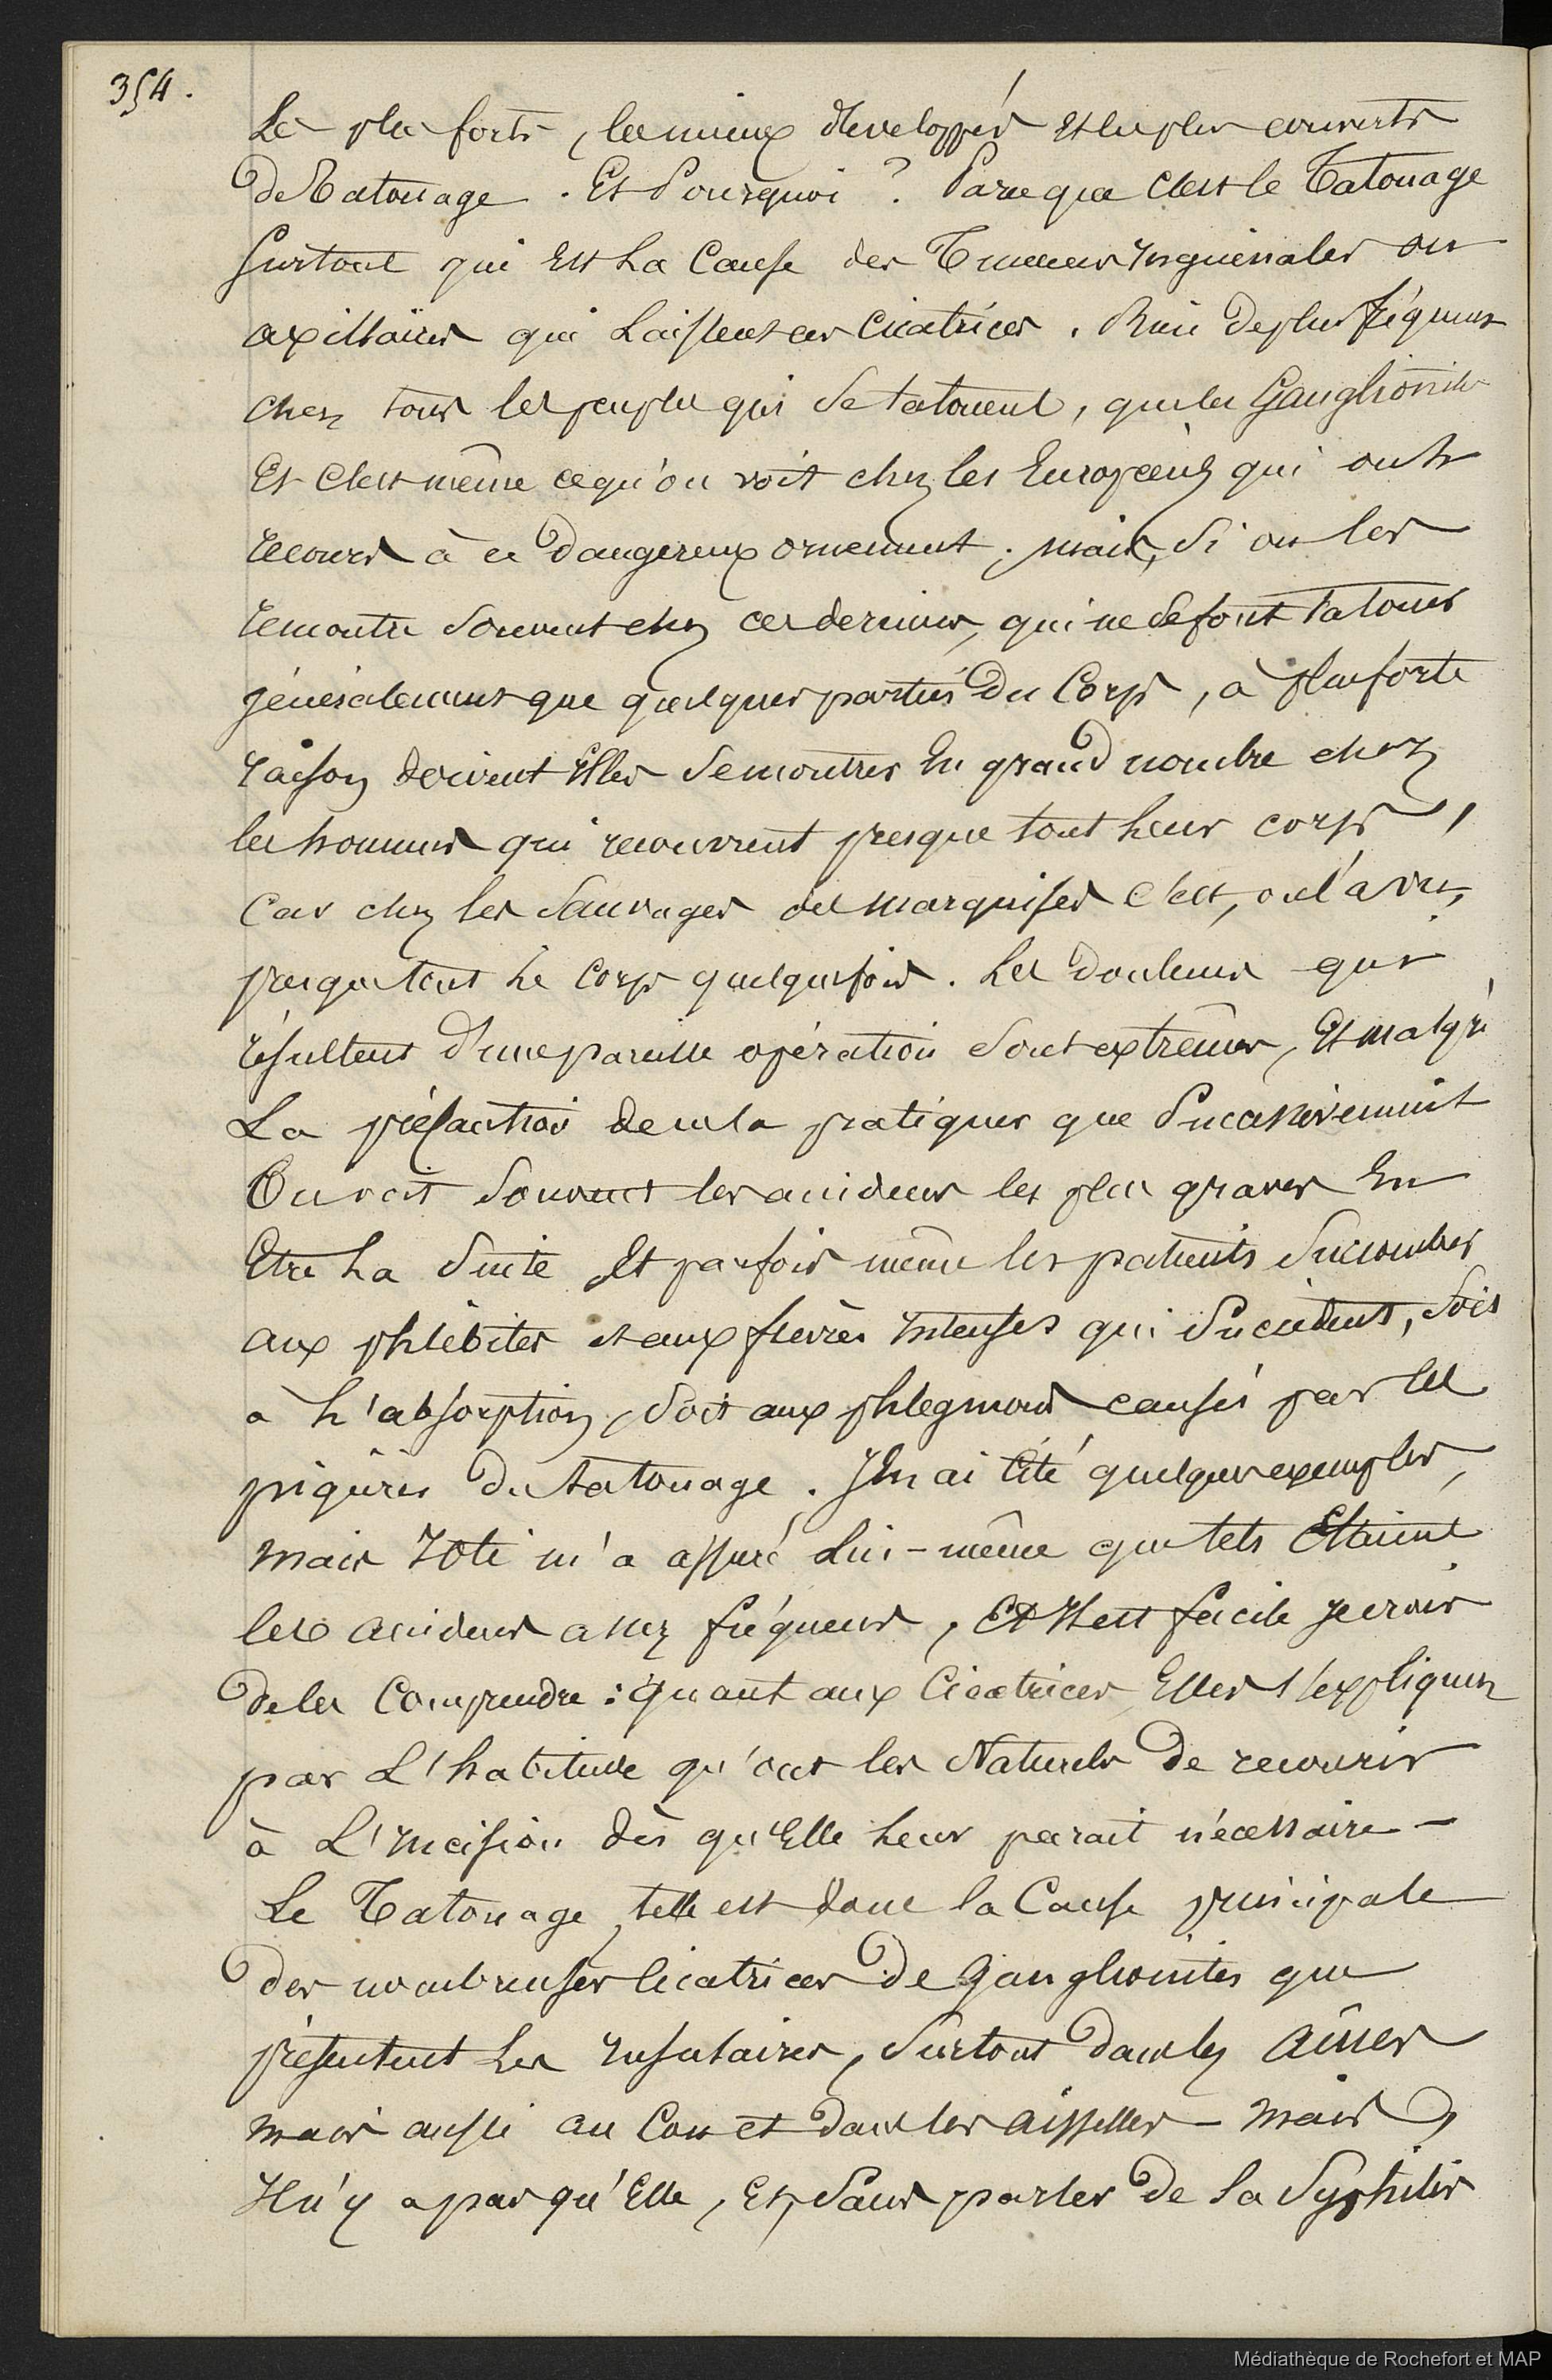 354.
Les plus forts, les mieux développés et les plus couverts
de Tatouage. Et Pourquoi ? Parceque C'est le Tatouage
Surtout qui Est La Cause des Tumeurs Inguinales ou
axillaires qui Laissent ces Cicatrices. Rien de plus fréquent
chez tous les peuples qui se tatouent, que les Ganglionites
Et C'est même ce qu'on voit chez les Européens qui ont
recours à ce dangereux ornement ; mais, Si on les
rencontre Souvent chez ces derniers, qui ne se font tatouer
généralement que quelques parties du Corps, à plus forte
raison doivent Elles Se montrer En grand nombre chez
les hommes qui recouvrent presque tout Leur corps,
Car chez les Sauvages des Marquises C'est, on l'a vu,
presque tout Le Corps quelquefois. Les Douleurs qui
résultent d'une pareille opération Sont extrêmes, Et malgré
La précaution de ne la pratiquer que Successivement
On voit Souvent les accidens les plus graves En
Etre La Suite Et parfois même les patients Succomber
aux phlébites et aux fièvres Intenses qui Succèdent, Soit
à L'absorption, Soit aux phlegmons causés par les
piqûres du tatouage. J'En ai Cité quelques exemples,
mais Zoté m'a assuré Lui-même que tels Etaient
les accidens assez fréquens, Et Il est facile je crois
de les Comprendre : quant aux Cicatrices Elles S'expliquent
par L'habitude qu'ont les Naturels de recourir
à L'Incision dès qu'Elle Leur parait nécessaire –
Le Tatouage, telle est donc la Cause principale
des nombreuses Cicatrices de Ganglionites que
présentent Les Insulaires, Surtout dans les Aînes
mais aussi au Cou et dans les aisselles – mais
Il n'y a pas qu'Elle, Et, Sans parler de la Syphilis
Médiathèque de Rochefort et MAP